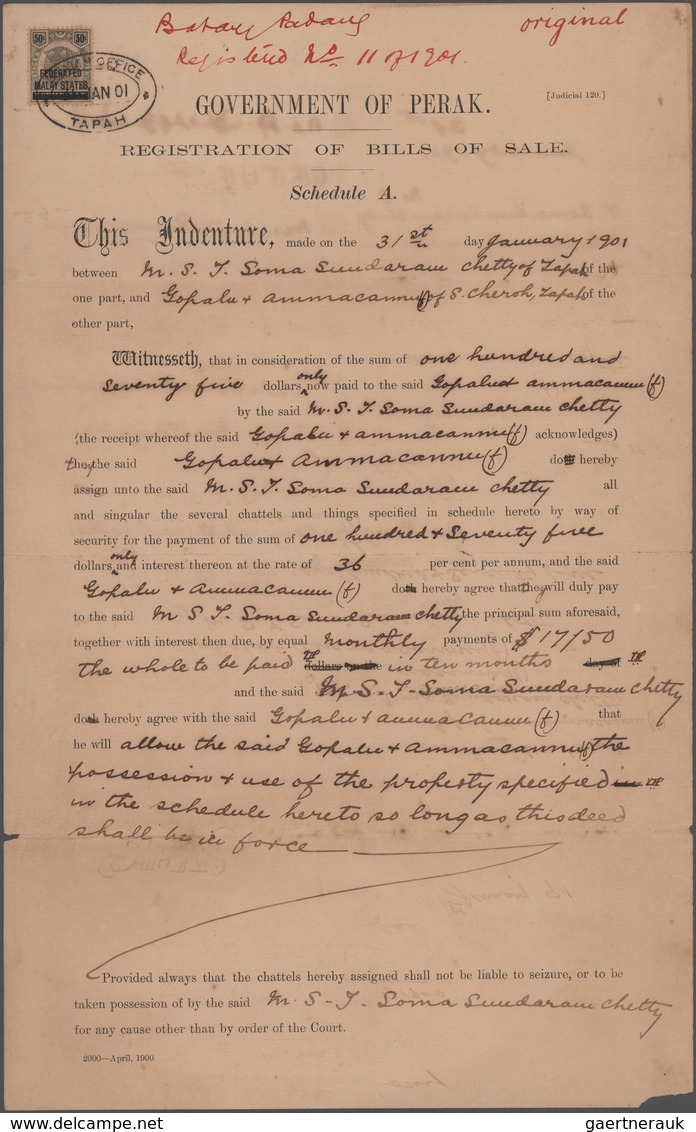 Batang Padang
original
Registered No 11 of 1901.
50c 50c
FEDERATED
MALAY STATES
OFFICE
JAN 01
TAPAH
GOVERNMENT OF PERAK.
[Judicial 120.]
REGISTRATION OF BILLS OF SALE.
Schedule A.
This Indenture, made on the 31st day January 1901
between M. S. T. Soma Sundaram Chetty of Tapah of the
one part, and Gopalu + Ammacannu (f) of S. Cheroh, Tapah of the
other part,
Witnesseth, that in consideration of the sum of one hundred and
Seventy five dollars only now paid to the said Gopalu + Ammacannu (f)
by the said M. S. T. Soma Sundaram Chetty
(the receipt whereof the said Gopalu + Ammacannu (f) acknowledges)
they the said Gopalu + Ammacannu (f) doth hereby
assign unto the said M. S. T. Soma Sundaram Chetty all
and singular the several chattels and things specified in schedule hereto by way of
security for the payment of the sum of one hundred + Seventy five
dollars only and interest thereon at the rate of 36 per cent per annum, and the said
Gopalu + Ammacannu (f) doth hereby agree that they will duly pay
to the said M S T. Soma Sundaram Chetty the principal sum aforesaid,
together with interest then due, by equal monthly payments of $17/50
the whole to be paid dollars on the in ten months day of
and the said M. S. T. Soma Sundaram Chetty
doth hereby agree with the said Gopalu + Ammacannu (f) that
he will allow the said Gopalu + Ammacannu (f) the
possession + use of the property specified in
in the schedule hereto so long as this deed
shall be in force
Provided always that the chattels hereby assigned shall not be liable to seizure, or to be
taken possession of by the said M. S. T. Soma Sundaram Chetty
for any cause other than by order of the Court.
2000—April, 1900.
www.delcampe.net
gaertnerauk